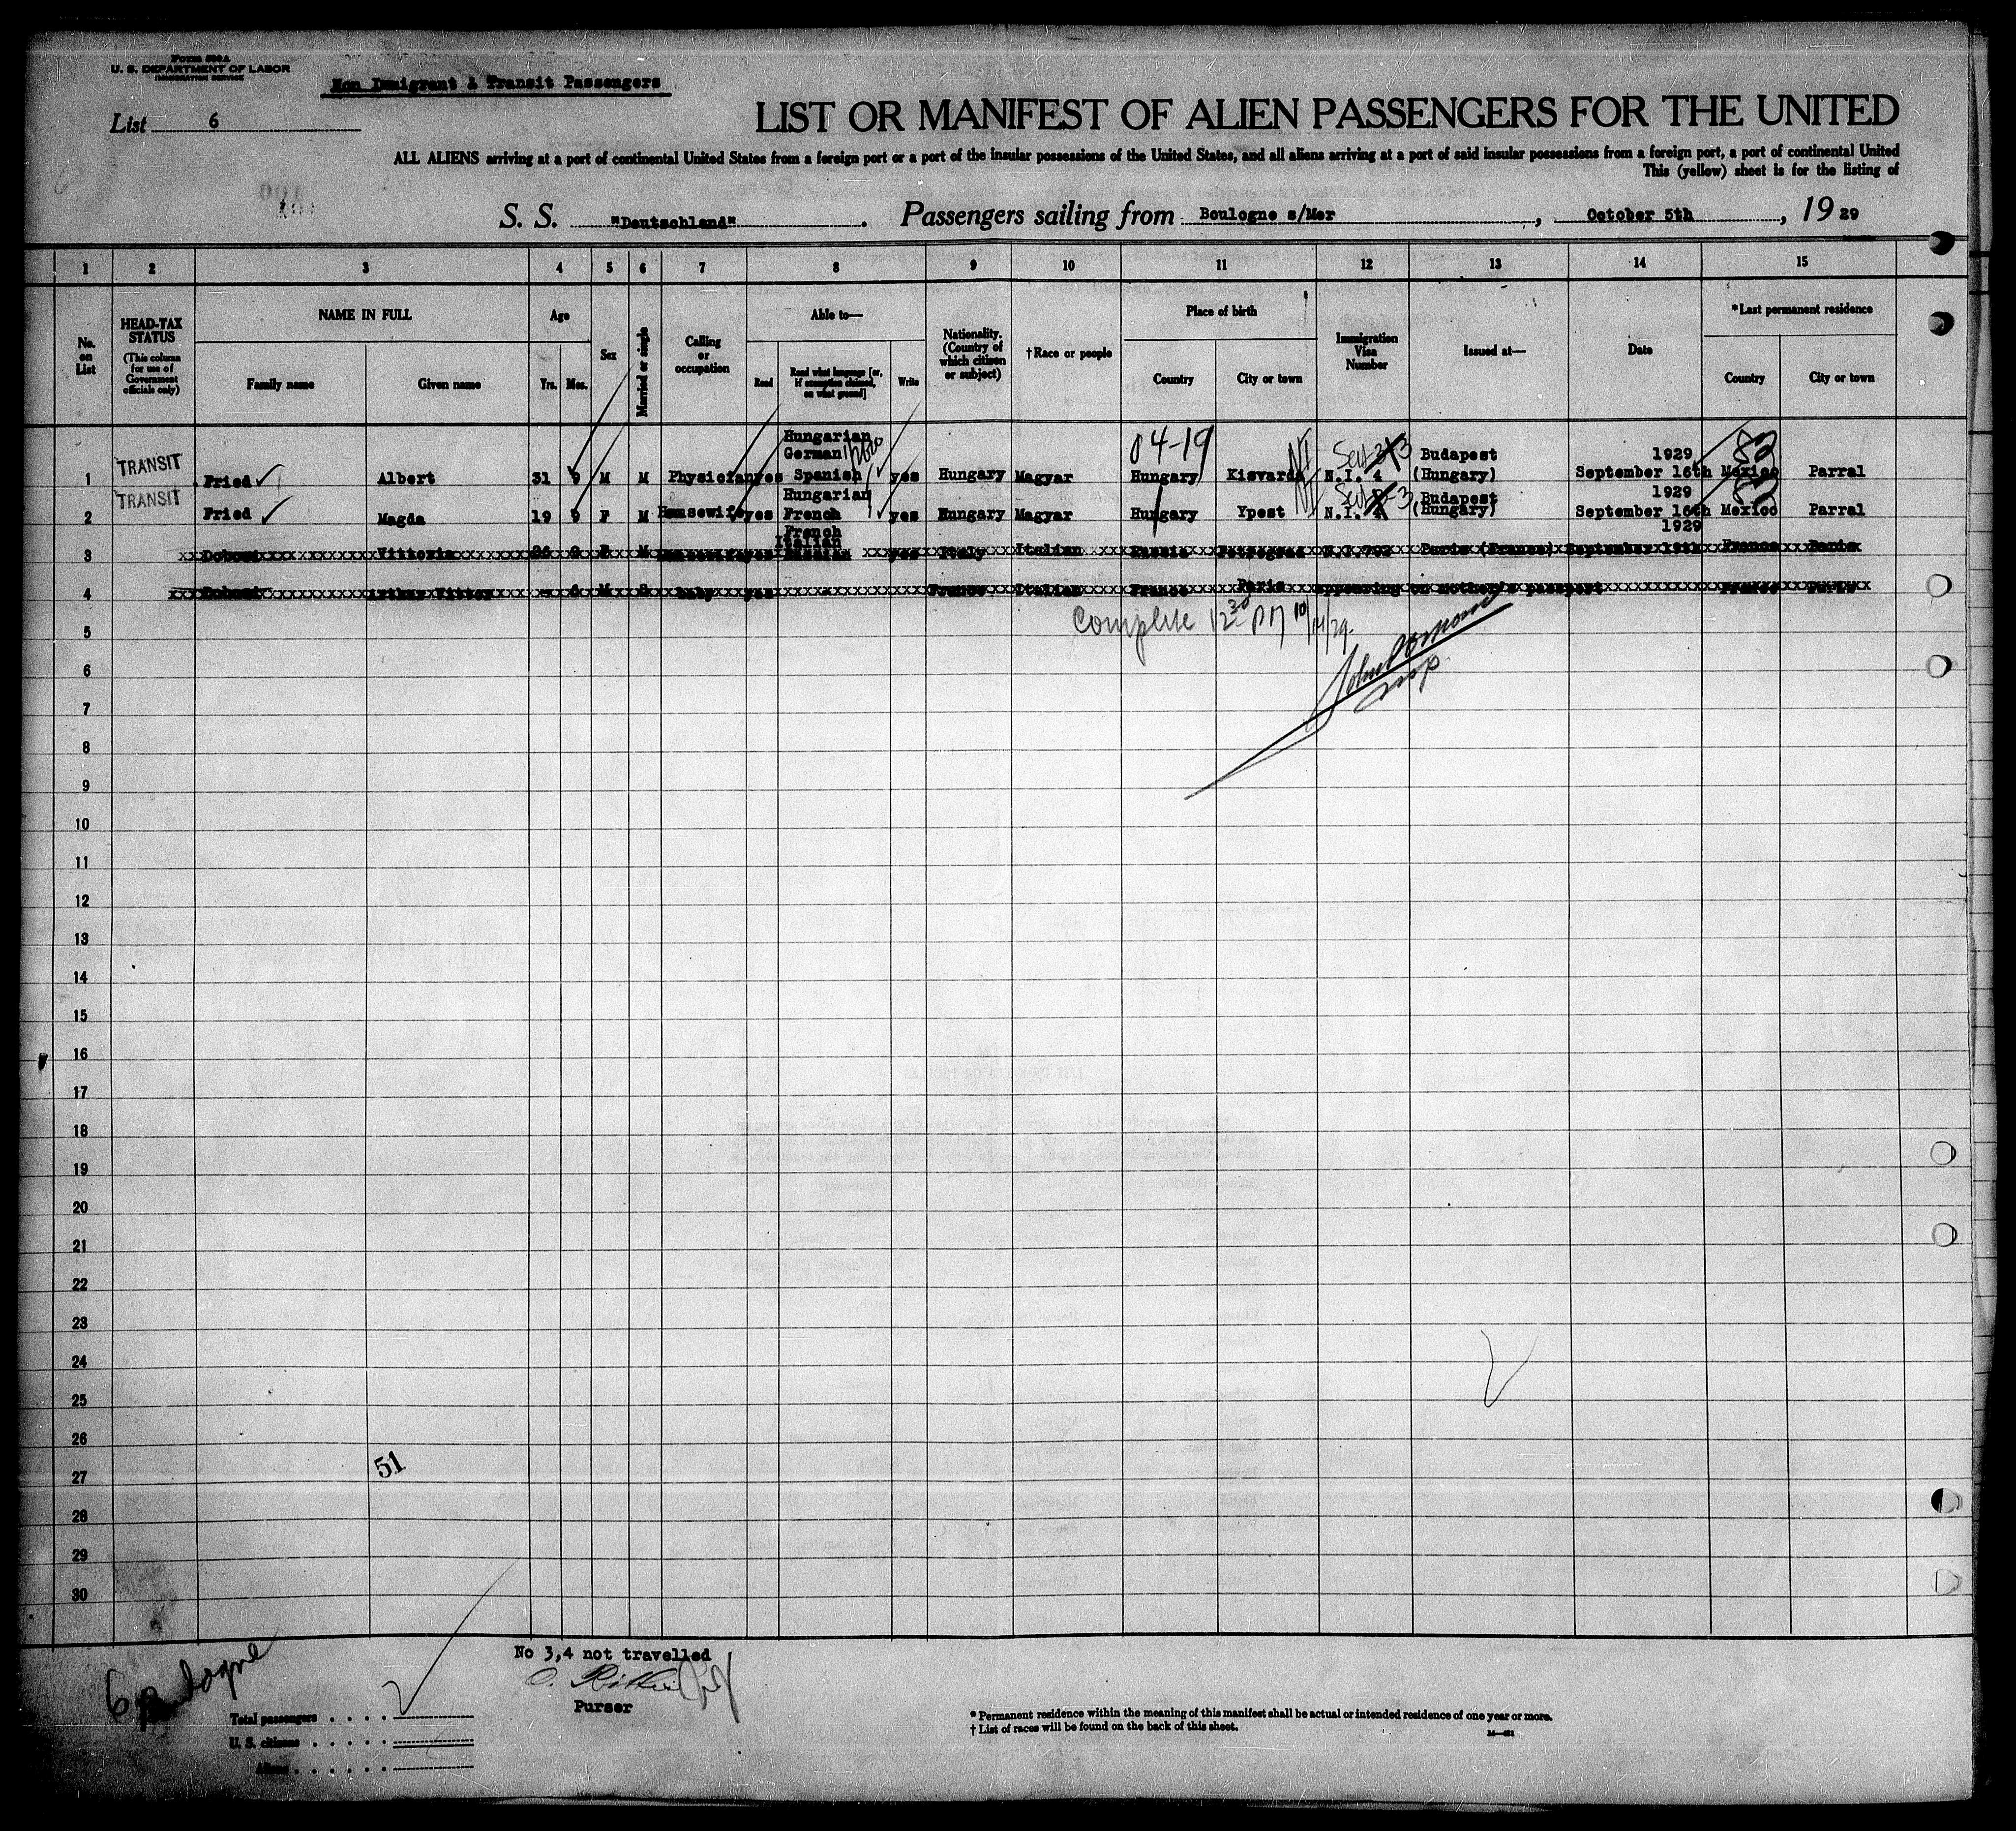 Form 500A
U. S. DEPARTMENT OF LABOR
IMMIGRATION SERVICE
Non Immigrant & Transit Passengers
List 6
LIST OR MANIFEST OF ALIEN PASSENGERS FOR THE UNITED
ALL ALIENS arriving at a port of continental United States from a foreign port or a port of the insular possessions of the United States, and all aliens arriving at a port of said insular possessions from a foreign port, a port of continental United
This (yellow) sheet is for the listing of
S. S. "Deutschland". Passengers sailing from Boulogne s/Mer, October 5th, 19 29
1 2 3 4 5 6 7 8 9 10 11 12 13 14 15
No. on List
HEAD-TAX STATUS
(This column for use of Government officials only)
NAME IN FULL
Family name
Given name
Age
Yrs.
Mos.
Sex
Married or single
Calling or occupation
Able to—
Read
Read what language [or, if exemption claimed, on what ground]
Write
Nationality. (Country of which citizen or subject)
†Race or people
Place of birth
Country
City or town
Immigration Visa Number
Issued at—
Date
*Last permanent residence
Country
City or town
04-19
1 TRANSIT Fried Albert 31 9 M M Physician yes Hungarian German Spanish yes Hungary Magyar Hungary Kisvarda N.I. 4 Budapest (Hungary) 1929 September 16th Mexico Parral
2 TRANSIT Fried Magda 19 9 F M Housewife yes Hungarian French yes Hungary Magyar Hungary Ypest N.I. Budapest (Hungary) 1929 September 16th Mexico Parral
3 Vittoria F M yes French Italian Russian yes Italy Italian Russia Petrograd N.I. 792 Paris (France) 1929 September 19th France Paris
4 Arthur Victor - M S baby France Italian France Paris appearing on mother's passport France Paris
Complete 12 30 PM 10/14/29.
Insp
5
6
7
8
9
10
11
12
13
14
15
16
17
18
19
20
21
22
23
24
25
26
51
27
28
29
30
No 3,4 not travelled
Purser
6 Boulogne
Total passengers
U. S. citizens
Aliens
* Permanent residence within the meaning of this manifest shall be actual or intended residence of one year or more.
† List of races will be found on the back of this sheet.